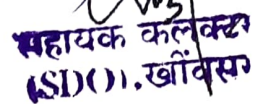 सहायक कलक्टर
(SDO). खींवसर